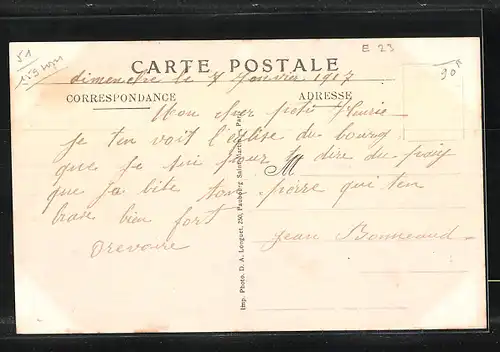 51
E 23
CARTE POSTALE
dimenche le 7 Janvier 1917
90
CORRESPONDANCE
ADRESSE
Mon cher petit
Je ten voit l'église du bourg
que je pui pour te dire du
que ja bite ton pierre qui ten
brase bien fort
M
Orevoire
Jean Bonneaud
Imp. Photo. D. A. Longuet, 250, Faubourg Saint-Martin, Paris